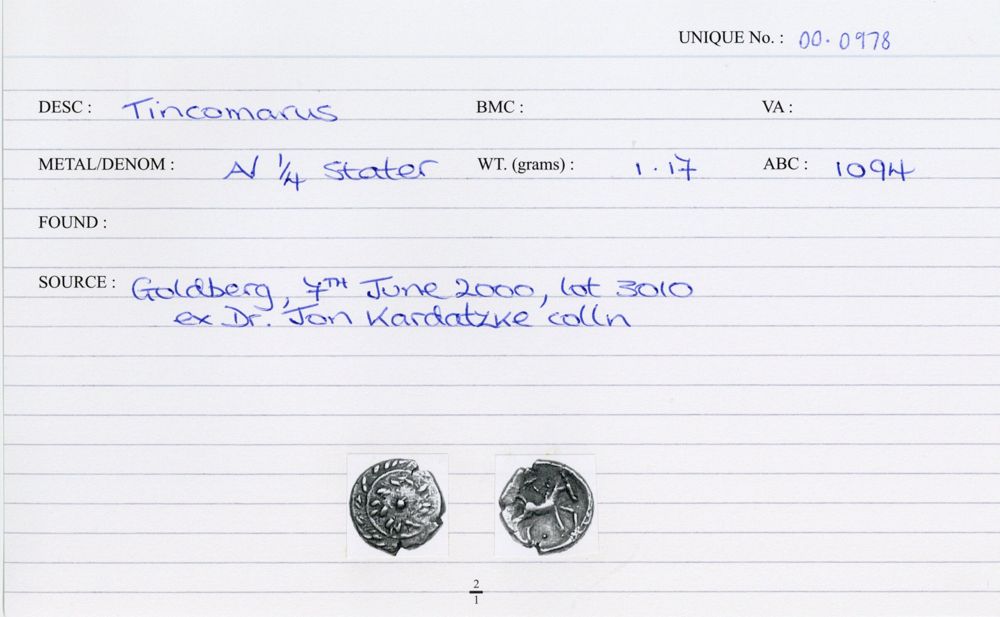 UNIQUE No. : 00.0978
DESC : Tincomarus BMC : VA :
METAL/DENOM : AV 1/4 Stater WT. (grams) : 1.17 ABC : 1094
FOUND :
SOURCE : Goldberg, 7TH June 2000, lot 3010
ex Dr. Jon Kardatzke colln
2
1